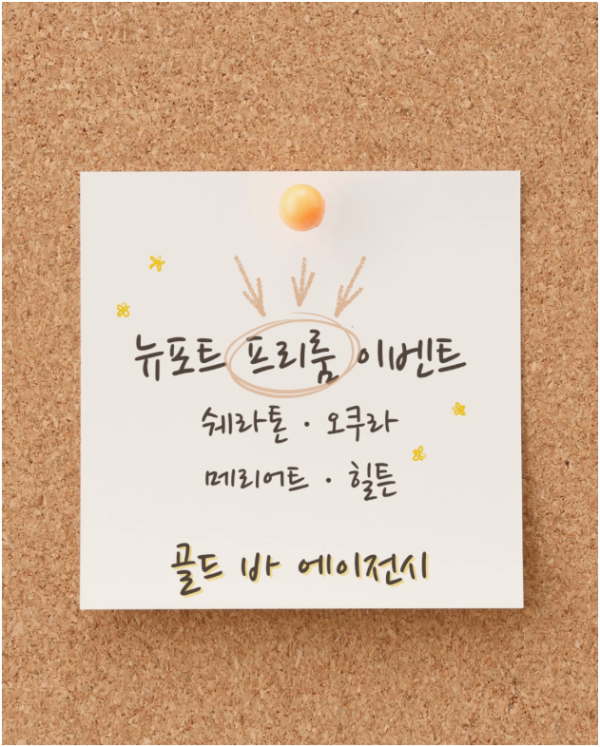 뉴포트 프리룸 이벤트
쉐라톤 · 오쿠라
메리어트 · 힐튼
골드 바 에이전시